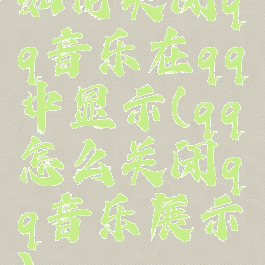 如何关闭qq
q音乐在qq
中显示(qq
怎么关闭q
q音乐展示
)